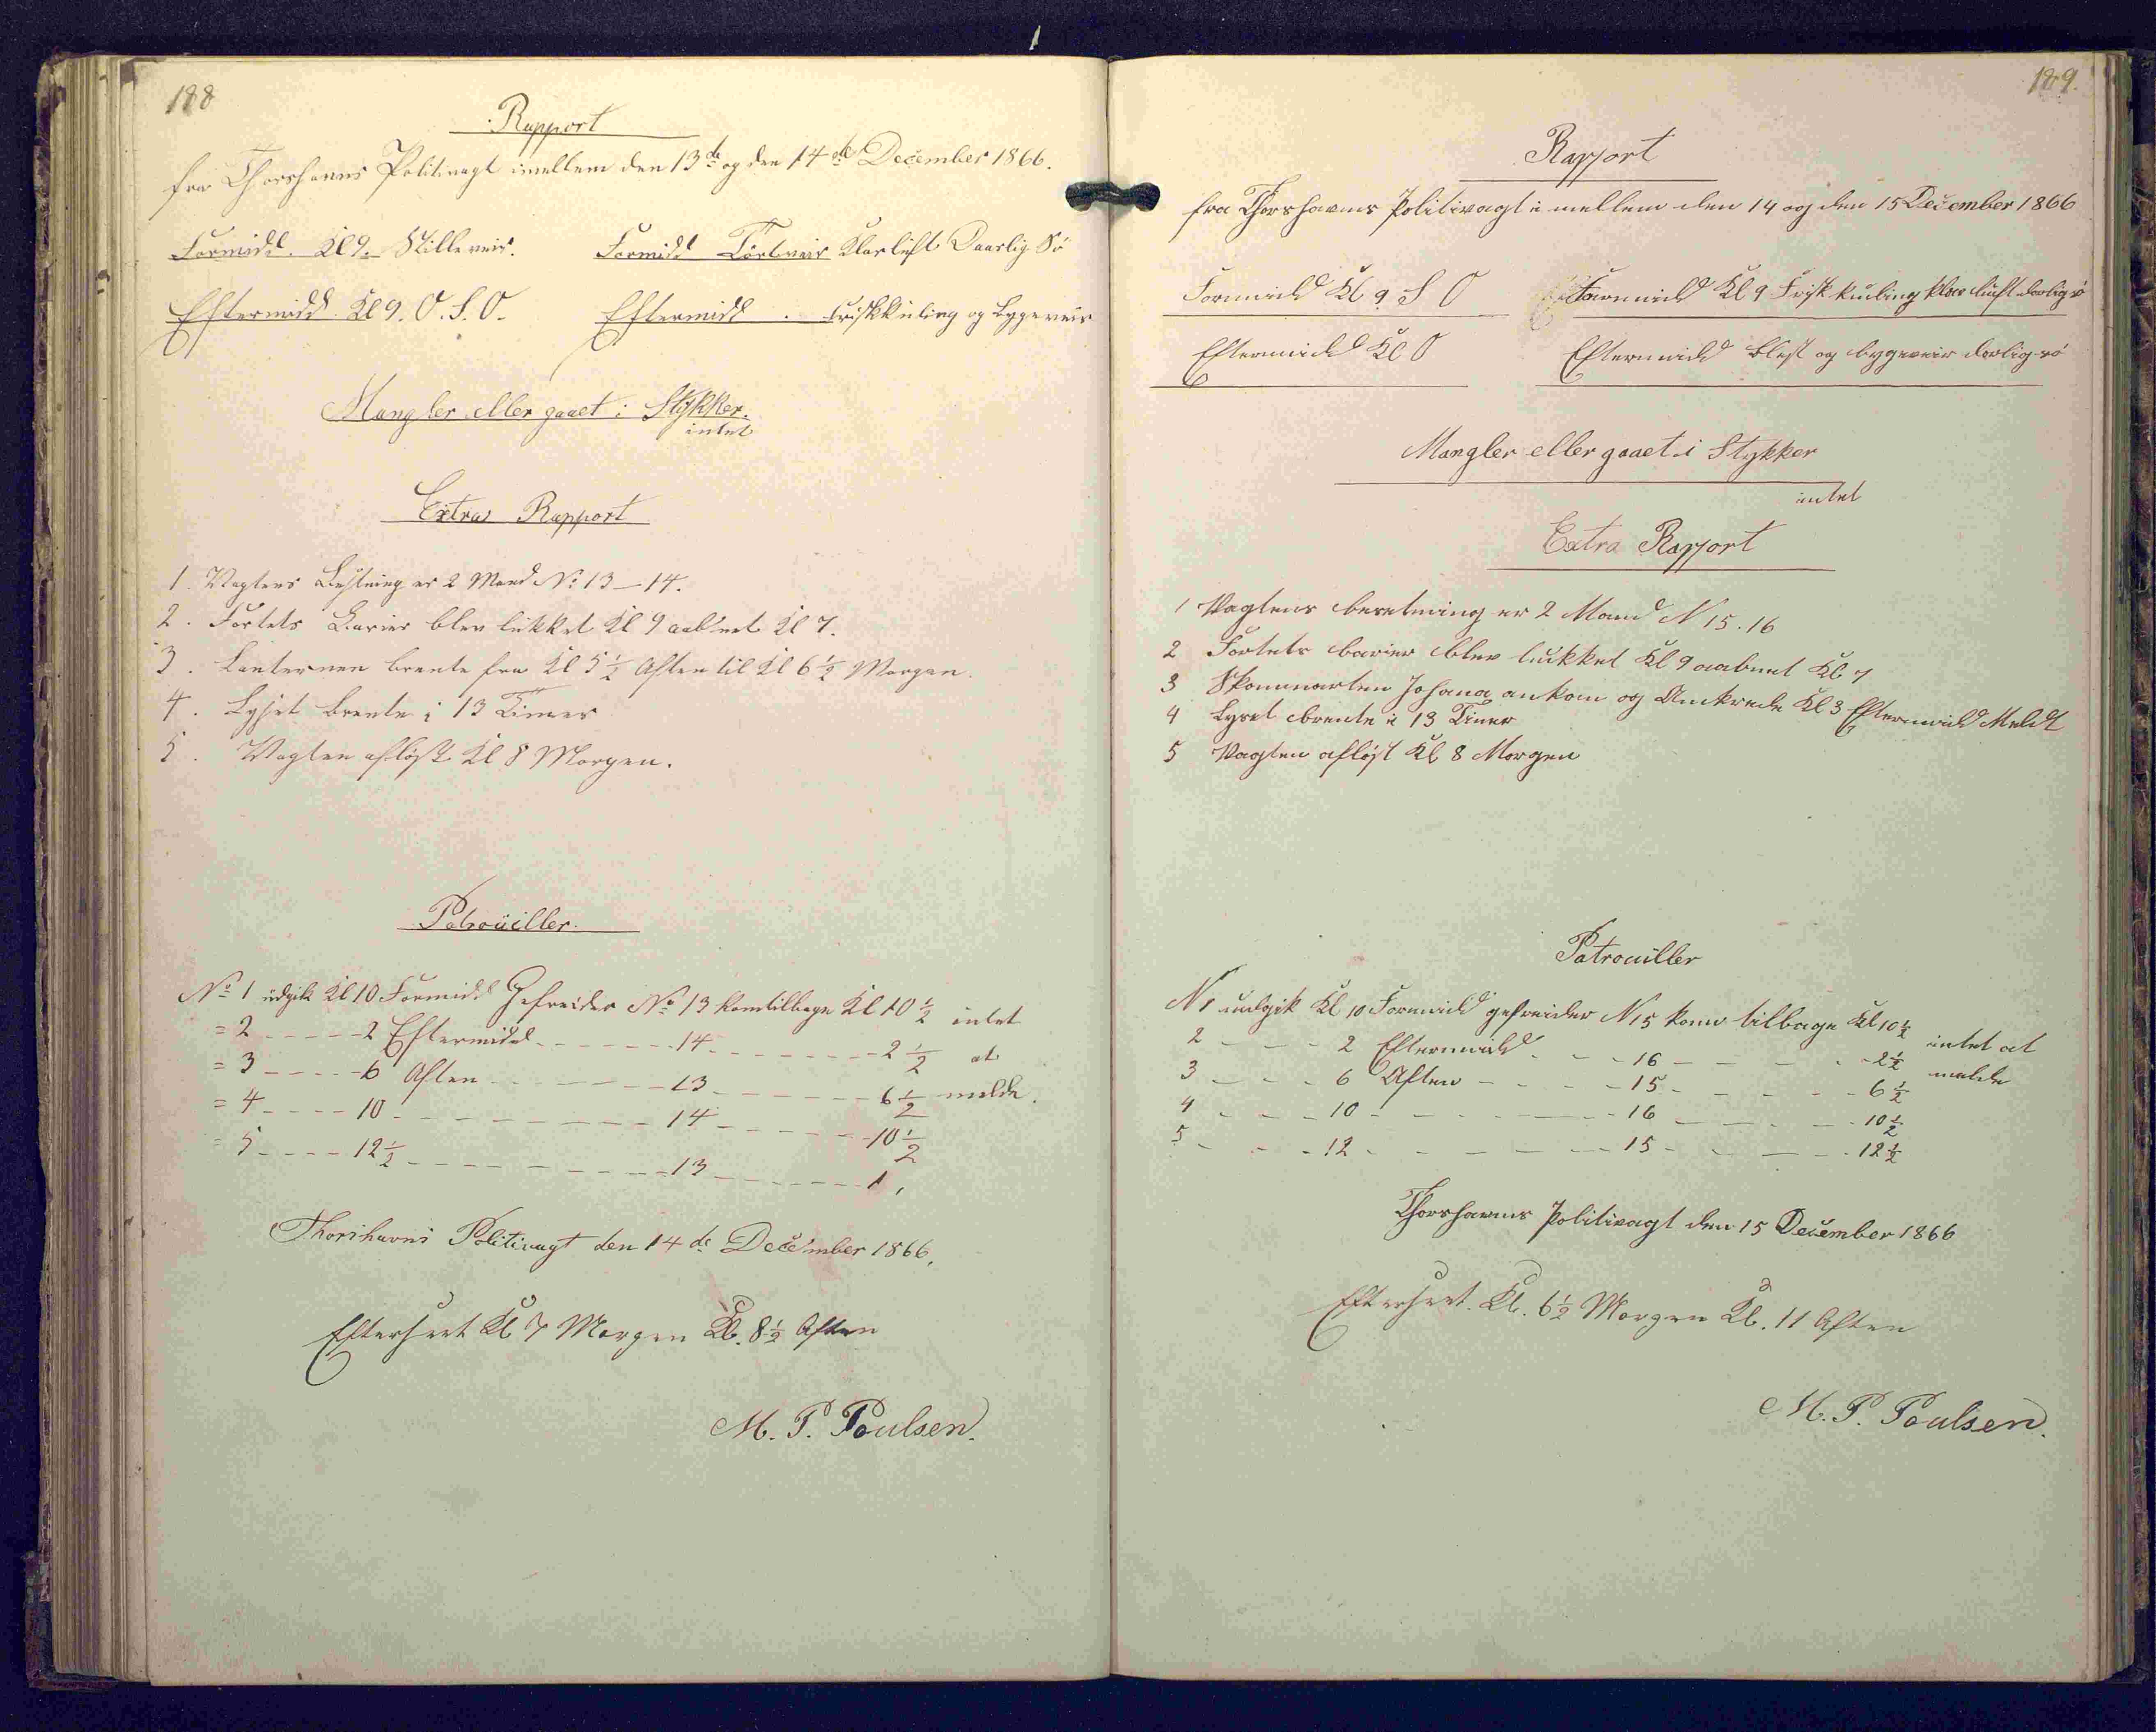 188
Rapport
fra Thorshavns Politivagt imellem den 13de og den 14de December 1866.
Formidd. Kl 9. Stille veir. Formidd Törtveir Klarluft Daarlig Sö
Eftermidd. Kl 9. O. S. O. Eftermidd. Friskkuling og Bygeveir
Mangler eller gaaet i Stykker.
intet
Extra Rapport
1. Vagtens Besetning er 2 Mand No 13 - 14.
2. Fortets Barier blev lukket Kl 9 aabnet Kl 7.
3. Lanternen brente fra Kl 5 1/2 Aften til Kl 6 1/2 Morgen.
4. Lyset brente i 13 Timer
5. Vagten aflöst Kl 8 Morgen.
Patrouiller.
No 1 udgik Kl 10 Formidd Gefreider No 13 kom tilbage Kl 10 1/2 intet
= 2 - - - - - 2 Eftermidd - - - - - - 14 - - - - - - - 2 1/2 at
= 3 - - - - - 6 Aften - - - - - - - 13 - - - - - - - 6 1/2 melde.
= 4 - - - - 10 - - - - - - - - - - 14 - - - - - - - 10 1/2
= 5 - - - - 12 1/2 - - - - - - - - - - 13 - - - - - - - 1,
Thorshavns Politivagt den 14de December 1866,
Efterseet Kl 7 Morgen Kl. 8 1/2 Aften
M. P. Poulsen.
189.
Rapport
fra Thorshavns Politivagt i mellem den 14 og den 15 December 1866
Formidd Kl 9 S O Formidd Kl 9 Frisk kuling klar luft dorlig sö
Eftermidd Kl O Eftermidd blest og bygeveir dorlig sö
Mangler eller gaaet i Stykker
intet
Extra Rapport
1 Vagtens besetning er 2 Mand N 15. 16
2 Fortets barier blev lukket Kl 9 aabnet Kl 7
3 Skonnarten Johana ankom og Ankrede Kl 3 Eftermidd Meldt
4 Lyset brente i 13 Timer
5 Vagten aflöst Kl 8 Morgen
Patrouiller
N 1 udgik Kl 10 Formidd gefreider N 15 kom tilbage Kl 10 1/2 intet at
2 - - - - 2 Eftermidd - - - 16 - - - - - 2 1/2 melde
3 - - - - 6 Aften - - - - 15 - - - - - 6 1/2
4 - - - - 10 - - - - - - 16 - - - - - 10 1/2
5 - - - - 12 - - - - - - 15 - - - - - 12 1/2
Thorshavns Politivagt den 15 December 1866
Efterseet. Kl. 6 1/2 Morgen Kl. 11 Aften
M. P. Poulsen.